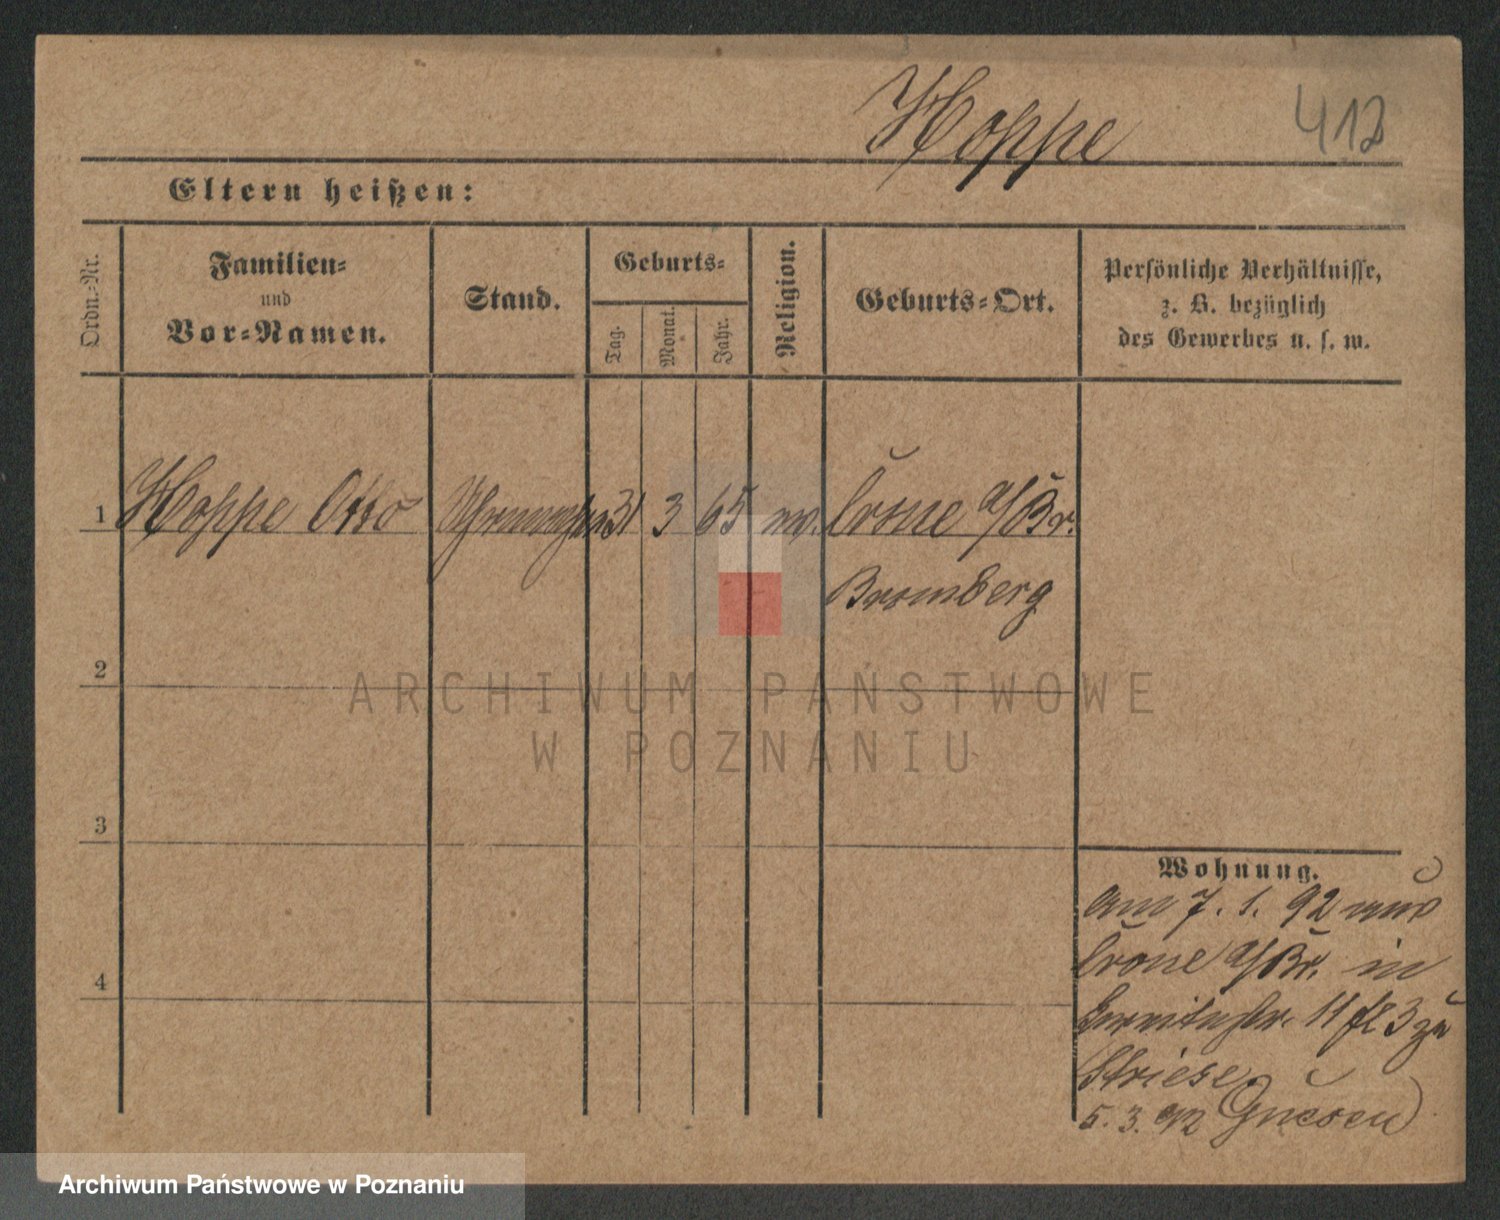 Hoppe
412
Eltern heißen:
Ordn.-Nr.
Familien-
und
Vor-Namen.
Stand.
Geburts-
Tag.
Monat.
Jahr.
Religion.
Geburts-Ort.
Persönliche Verhältnisse,
z. B. bezüglich
des Gewerbes u. s. w.
1 Hoppe Otto Uhrmacher 31 3 65 ev. Crone a/Br.
Bromberg
2
3
4
Wohnung.
am 7. 1. 92 aus
Crone a/Br. in
11 3 zu
Striese
5. 3. 92 Gnesen
ARCHIWUM PAŃSTWOWE
W POZNANIU
Archiwum Państwowe w Poznaniu